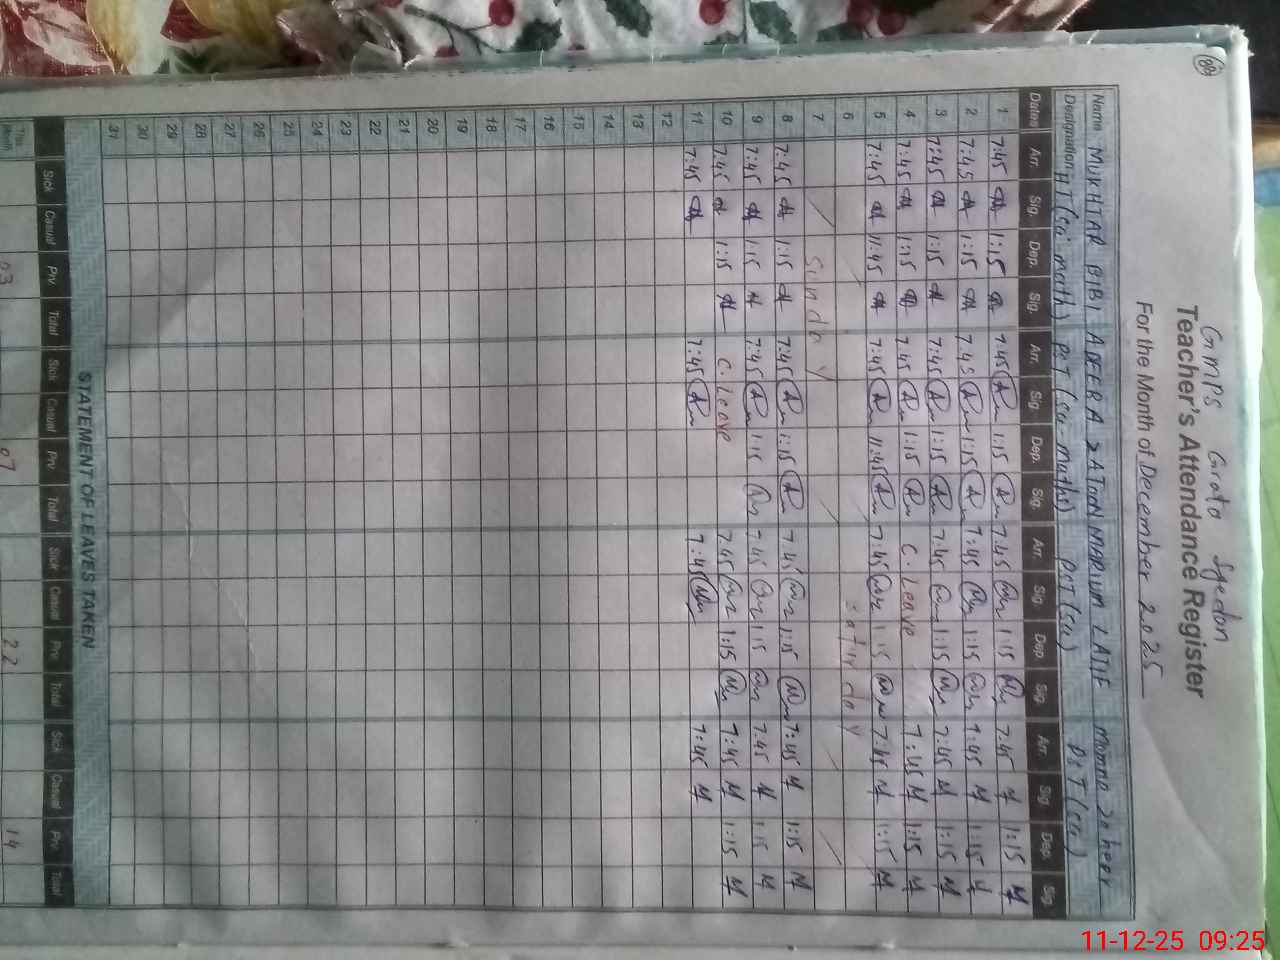 GMPS Girato Syedan
Teacher's Attendance Register
For the Month of December 2025
Name MUKHTAR BIBI ADEERA ZATOON MARIUM LATIF Momna Zaheer
Designation HT (sci math) PST (sci maths) PST (sci) PST (sci)
Dates Arr. Sig. Dep. Sig. Arr. Sig. Dep. Sig. Arr. Sig. Dep. Sig. Arr. Sig. Dep. Sig.
1 7:45 1:15 7:45 1:15 7:45 1:15 7:45 1:15
2 7:45 1:15 7:45 1:15 7:45 1:15 7:45 1:15
3 7:45 1:15 7:45 1:15 7:45 1:15 7:45 1:15
4 7:45 1:15 7:45 1:15 C. Leave 7:45 1:15
5 7:45 11:45 7:45 11:45 7:45 1:15 7:45 1:15
6 saturday
7 Sunday
8 7:45 1:15 7:45 1:15 7:45 1:15 7:45 1:15
9 7:45 1:15 7:45 1:15 7:45 1:15 7:45 1:15
10 7:45 1:15 C. Leave 7:45 1:15 7:45 1:15
11 7:45 7:45 7:45 7:45
12
13
14
15
16
17
18
19
20
21
22
23
24
25
26
27
28
29
30
31
STATEMENT OF LEAVES TAKEN
Sick Casual Prv. Total Sick Casual Prv. Total Sick Casual Prv. Total Sick Casual Prv. Total
This Month 03 07 22 14
11-12-25 09:25